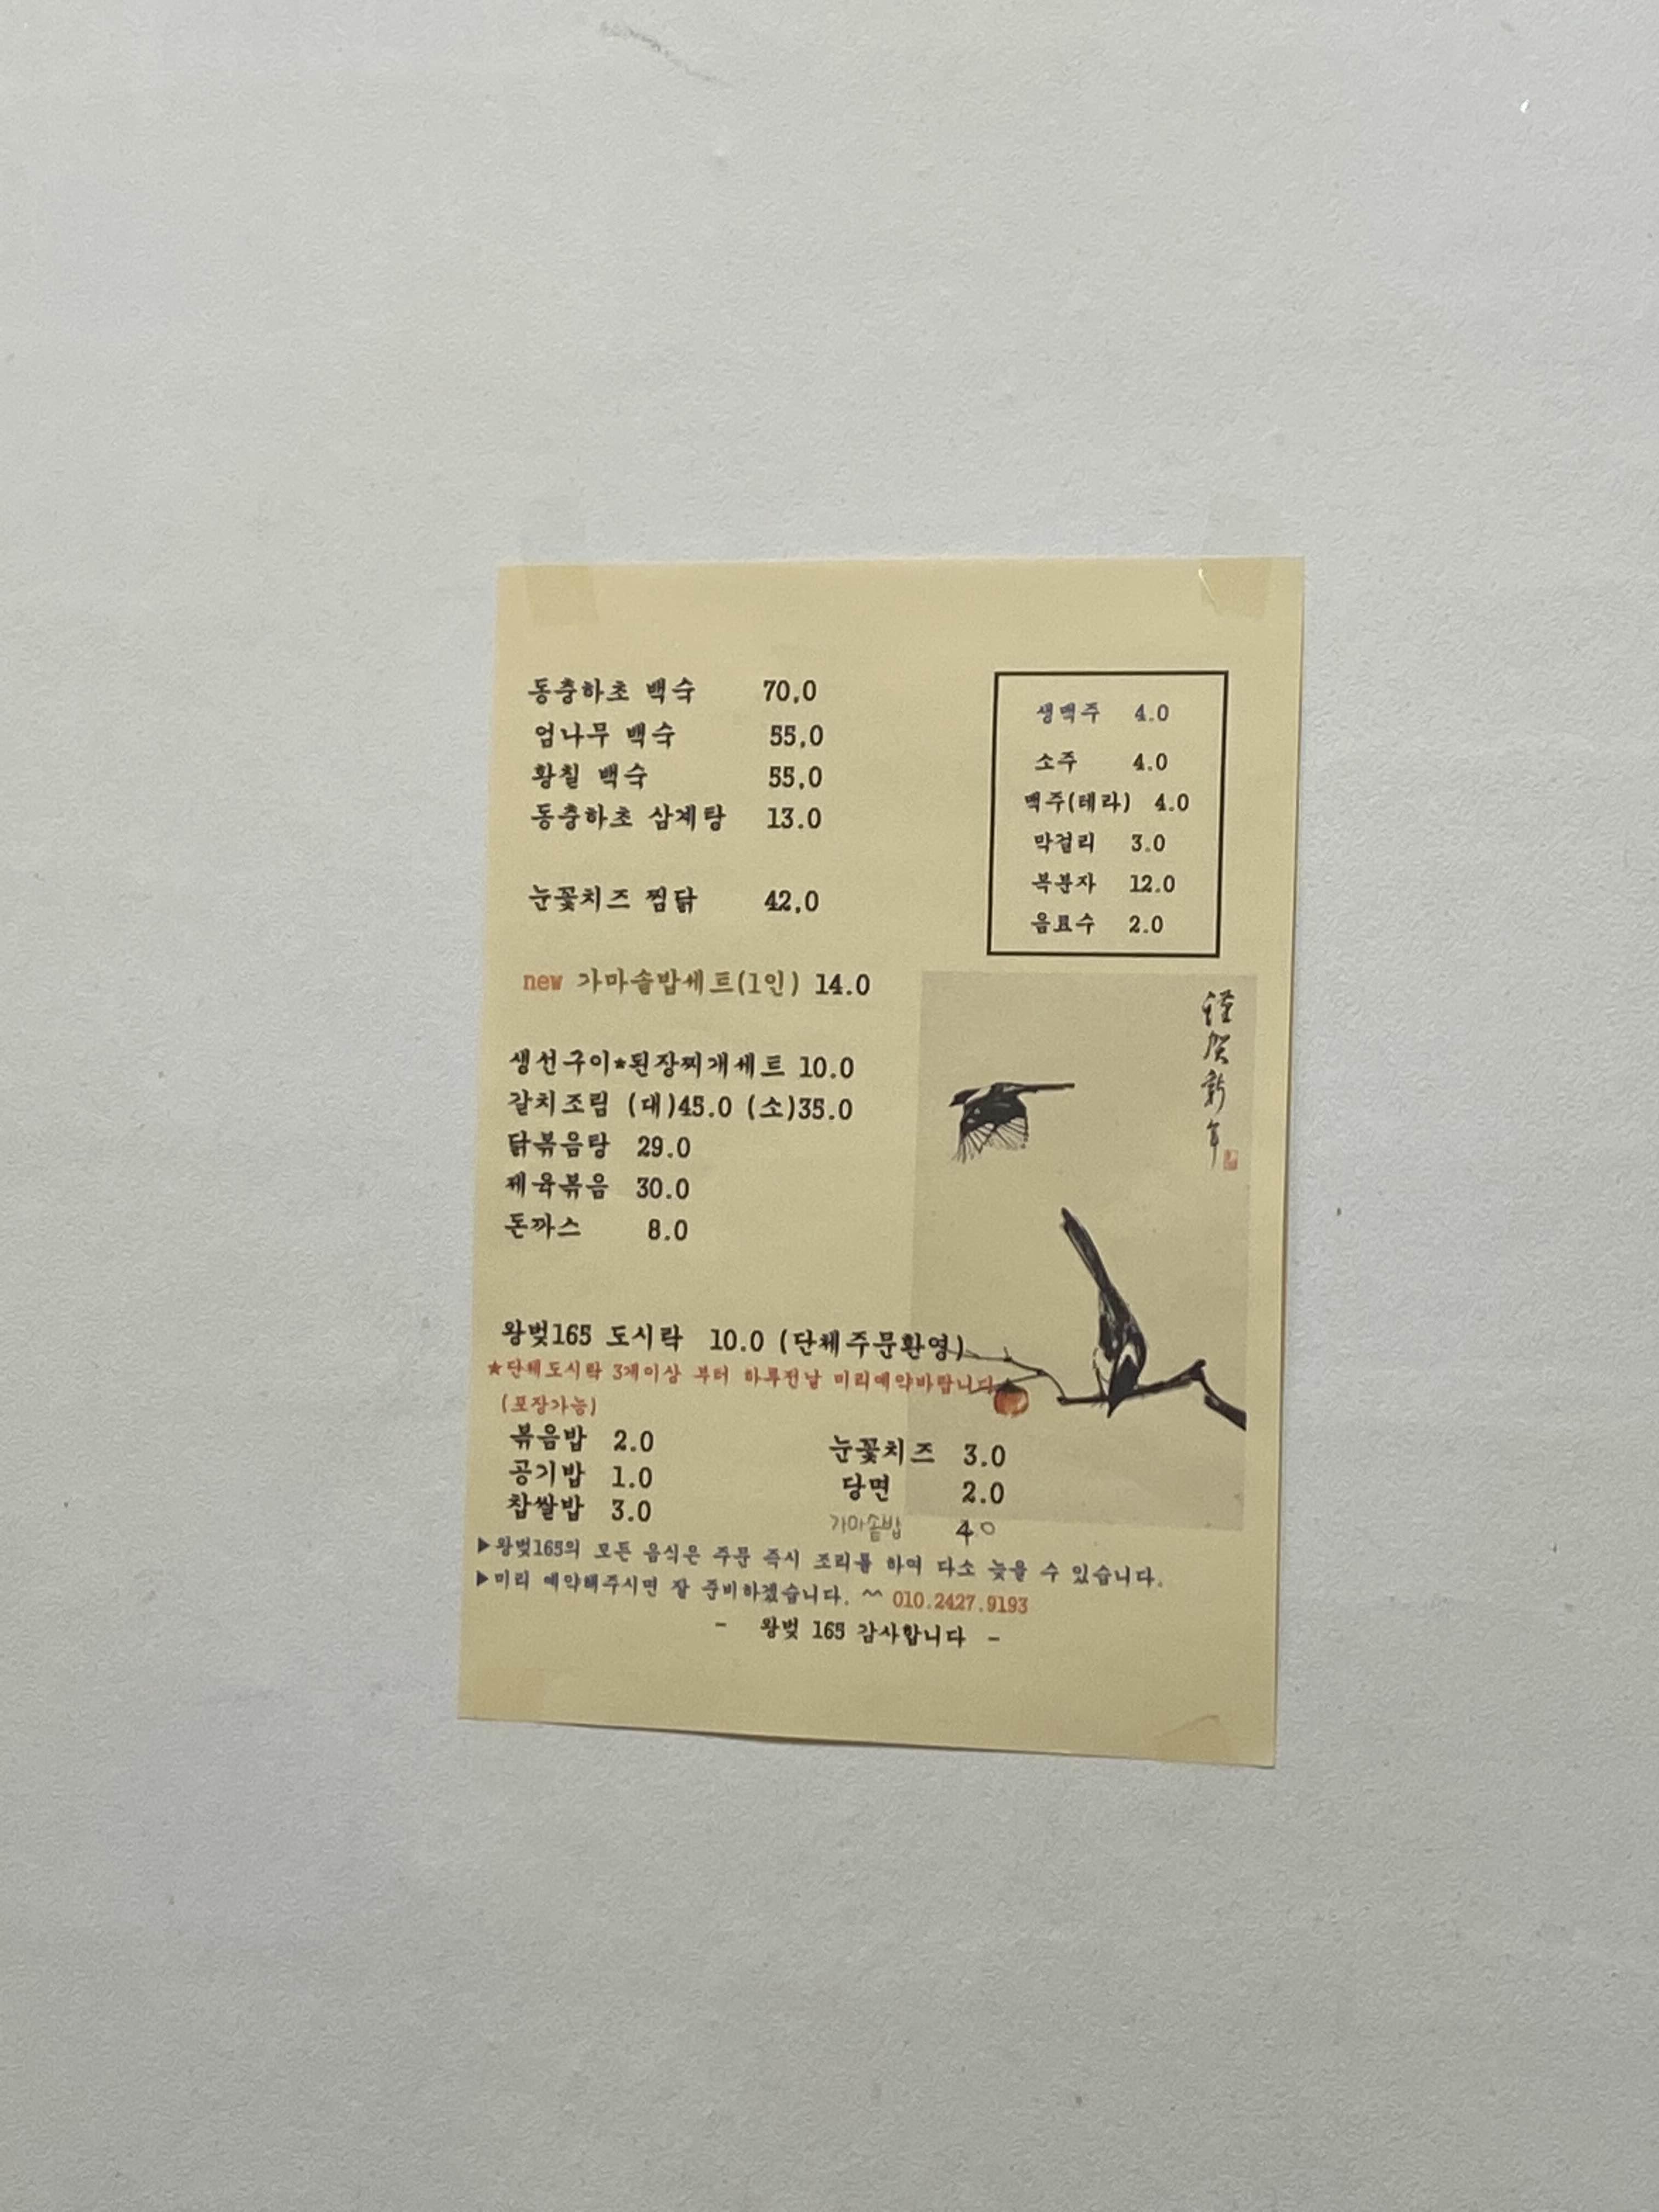 동충하초 백숙 70,0
엄나무 백숙 55,0
황칠 백숙 55,0
동충하초 삼계탕 13.0
눈꽃치즈 찜닭 42,0
new 가마솥밥세트(1인) 14.0
생선구이*된장찌개세트 10.0
갈치조림 (대)45.0 (소)35.0
닭볶음탕 29.0
제육볶음 30.0
돈까스 8.0
생맥주 4.0
소주 4.0
맥주(테라) 4.0
막걸리 3.0
복분자 12.0
음료수 2.0
謹賀新年
왕벚165 도시락 10.0 (단체주문환영)
★단체도시락 3개이상 부터 하루전날 미리예약바랍니다
(포장가능)
볶음밥 2.0
공기밥 1.0
찹쌀밥 3.0
눈꽃치즈 3.0
당면 2.0
가마솥밥 4.0
▶왕벚165의 모든 음식은 주문 즉시 조리를 하여 다소 늦을 수 있습니다.
▶미리 예약해주시면 잘 준비하겠습니다. ^^ 010.2427.9193
- 왕벚 165 감사합니다 -